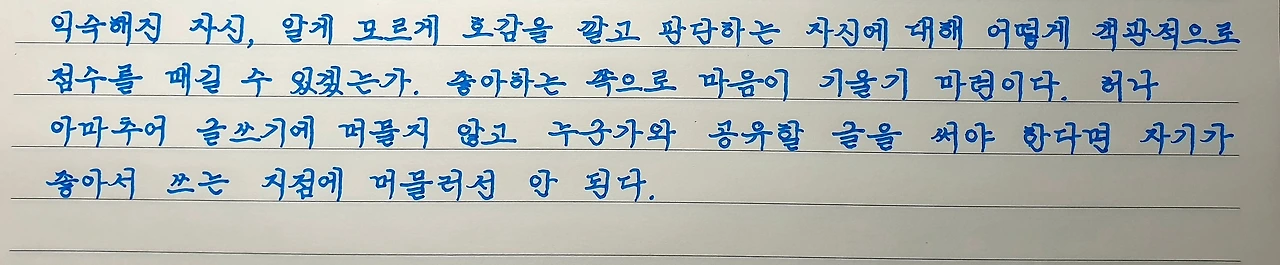 익숙해진 자신, 알게 모르게 호감을 깔고 판단하는 자신에 대해 어떻게 객관적으로
점수를 매길 수 있겠는가. 좋아하는 쪽으로 마음이 기울기 마련이다. 허나
아마추어 글쓰기에 머물지 않고 누군가와 공유할 글을 써야 한다면 자기가
좋아서 쓰는 지점에 머물러선 안 된다.